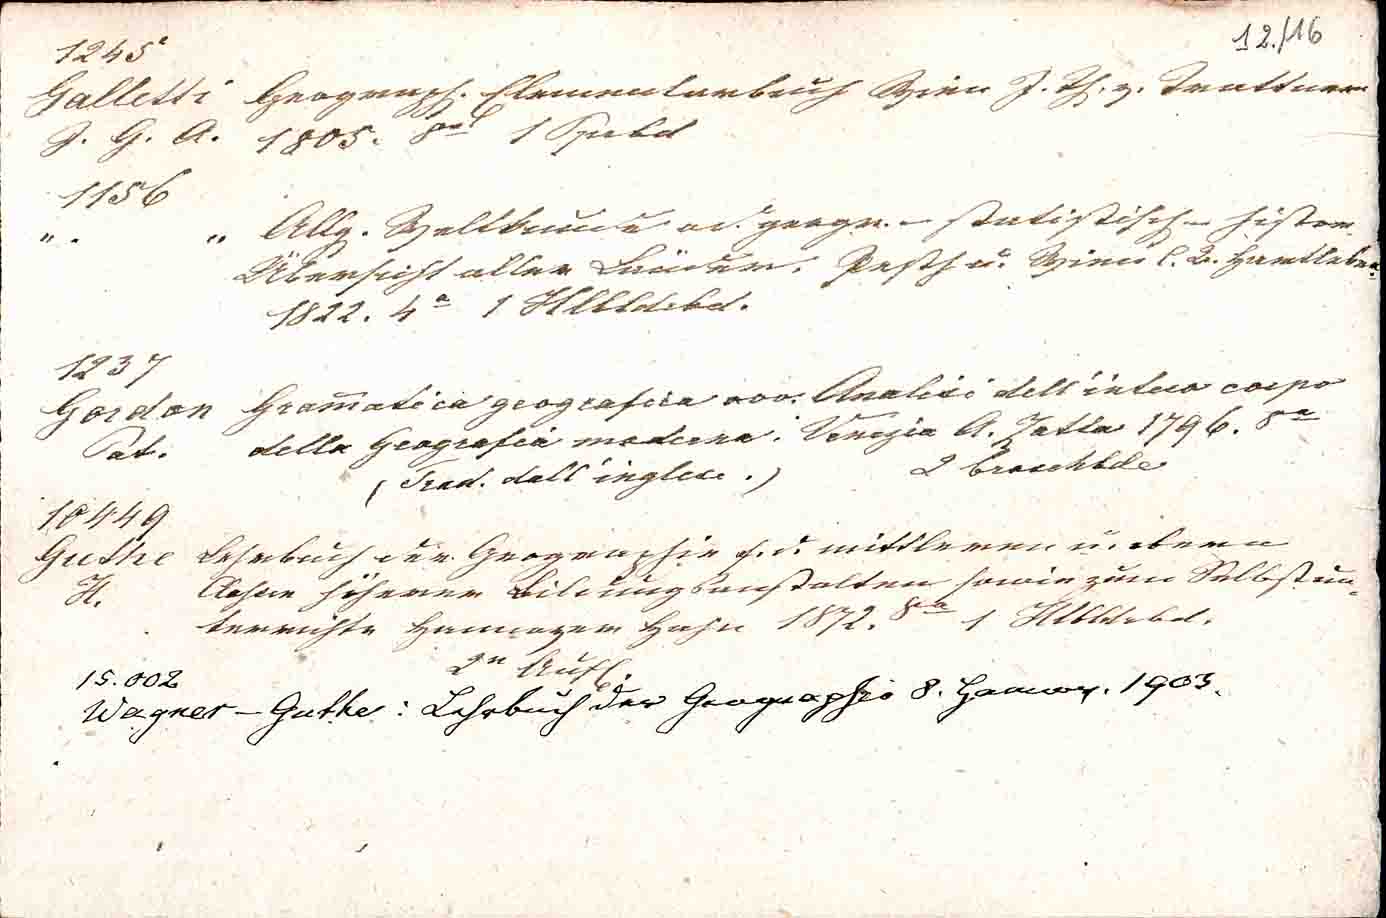 12./16
1245
Galletti Geograph. Elementarbuch Wien J. Th. v. Trattnern
J. G. A. 1805. 8° 1 Ppbd
1156
". " Allg. Weltkunde od. geogr.- statistisch- histor.
Übersicht aller Länder. Pesth u. Wien C. A. Hartleben
1822. 4° 1 Hlbldrbd.
1237
Gordon Gram̄atica geografica ovv. Analisi dell'intero corpo
Pat. della Geografia moderna. Venezia A. Zatta 1796. 8°
(Trad. dall'inglese.) 2 Broschbde
10449
Guthe Lehrbuch der Geographie f. d. mittleren u. obern
H. Classen höherer Bildungsanstalten sowie zum Selbstun-
terrichte Hannover Hahn 1872. 8° 1 Hlbldrbd.
2" Aufl.
15.002
Wagner – Guthe: Lehrbuch der Geographie 8. Hannov. 1903.